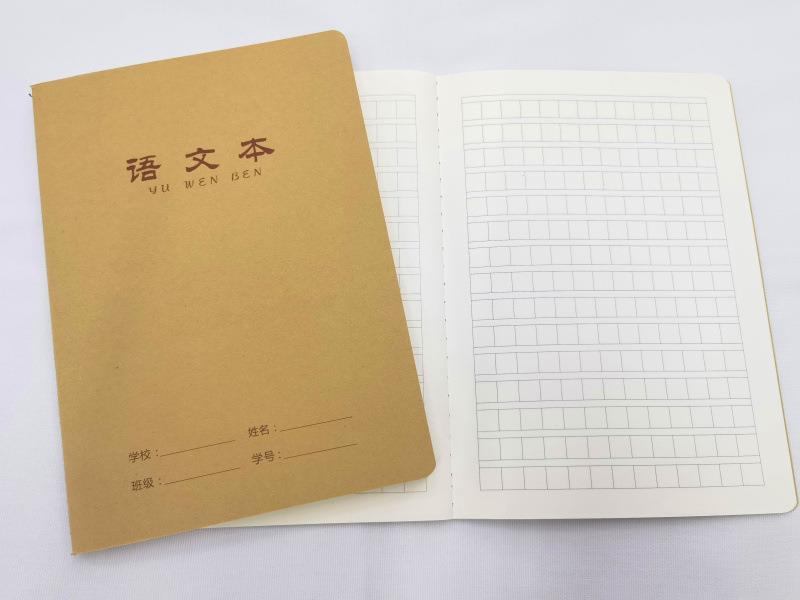 语文本
YU WEN BEN
学校： 姓名：
班级： 学号：